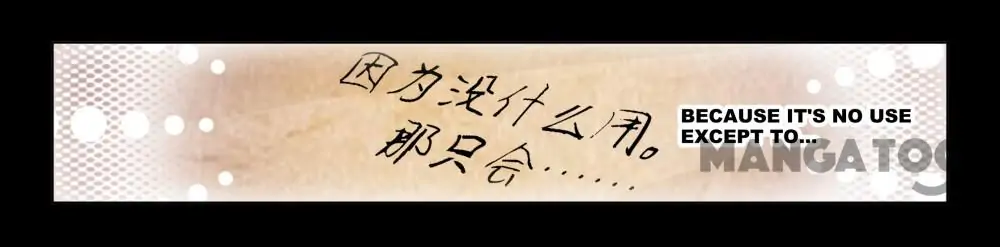 因为没什么用。
那只会……
BECAUSE IT'S NO USE
EXCEPT TO...
MANGATOG